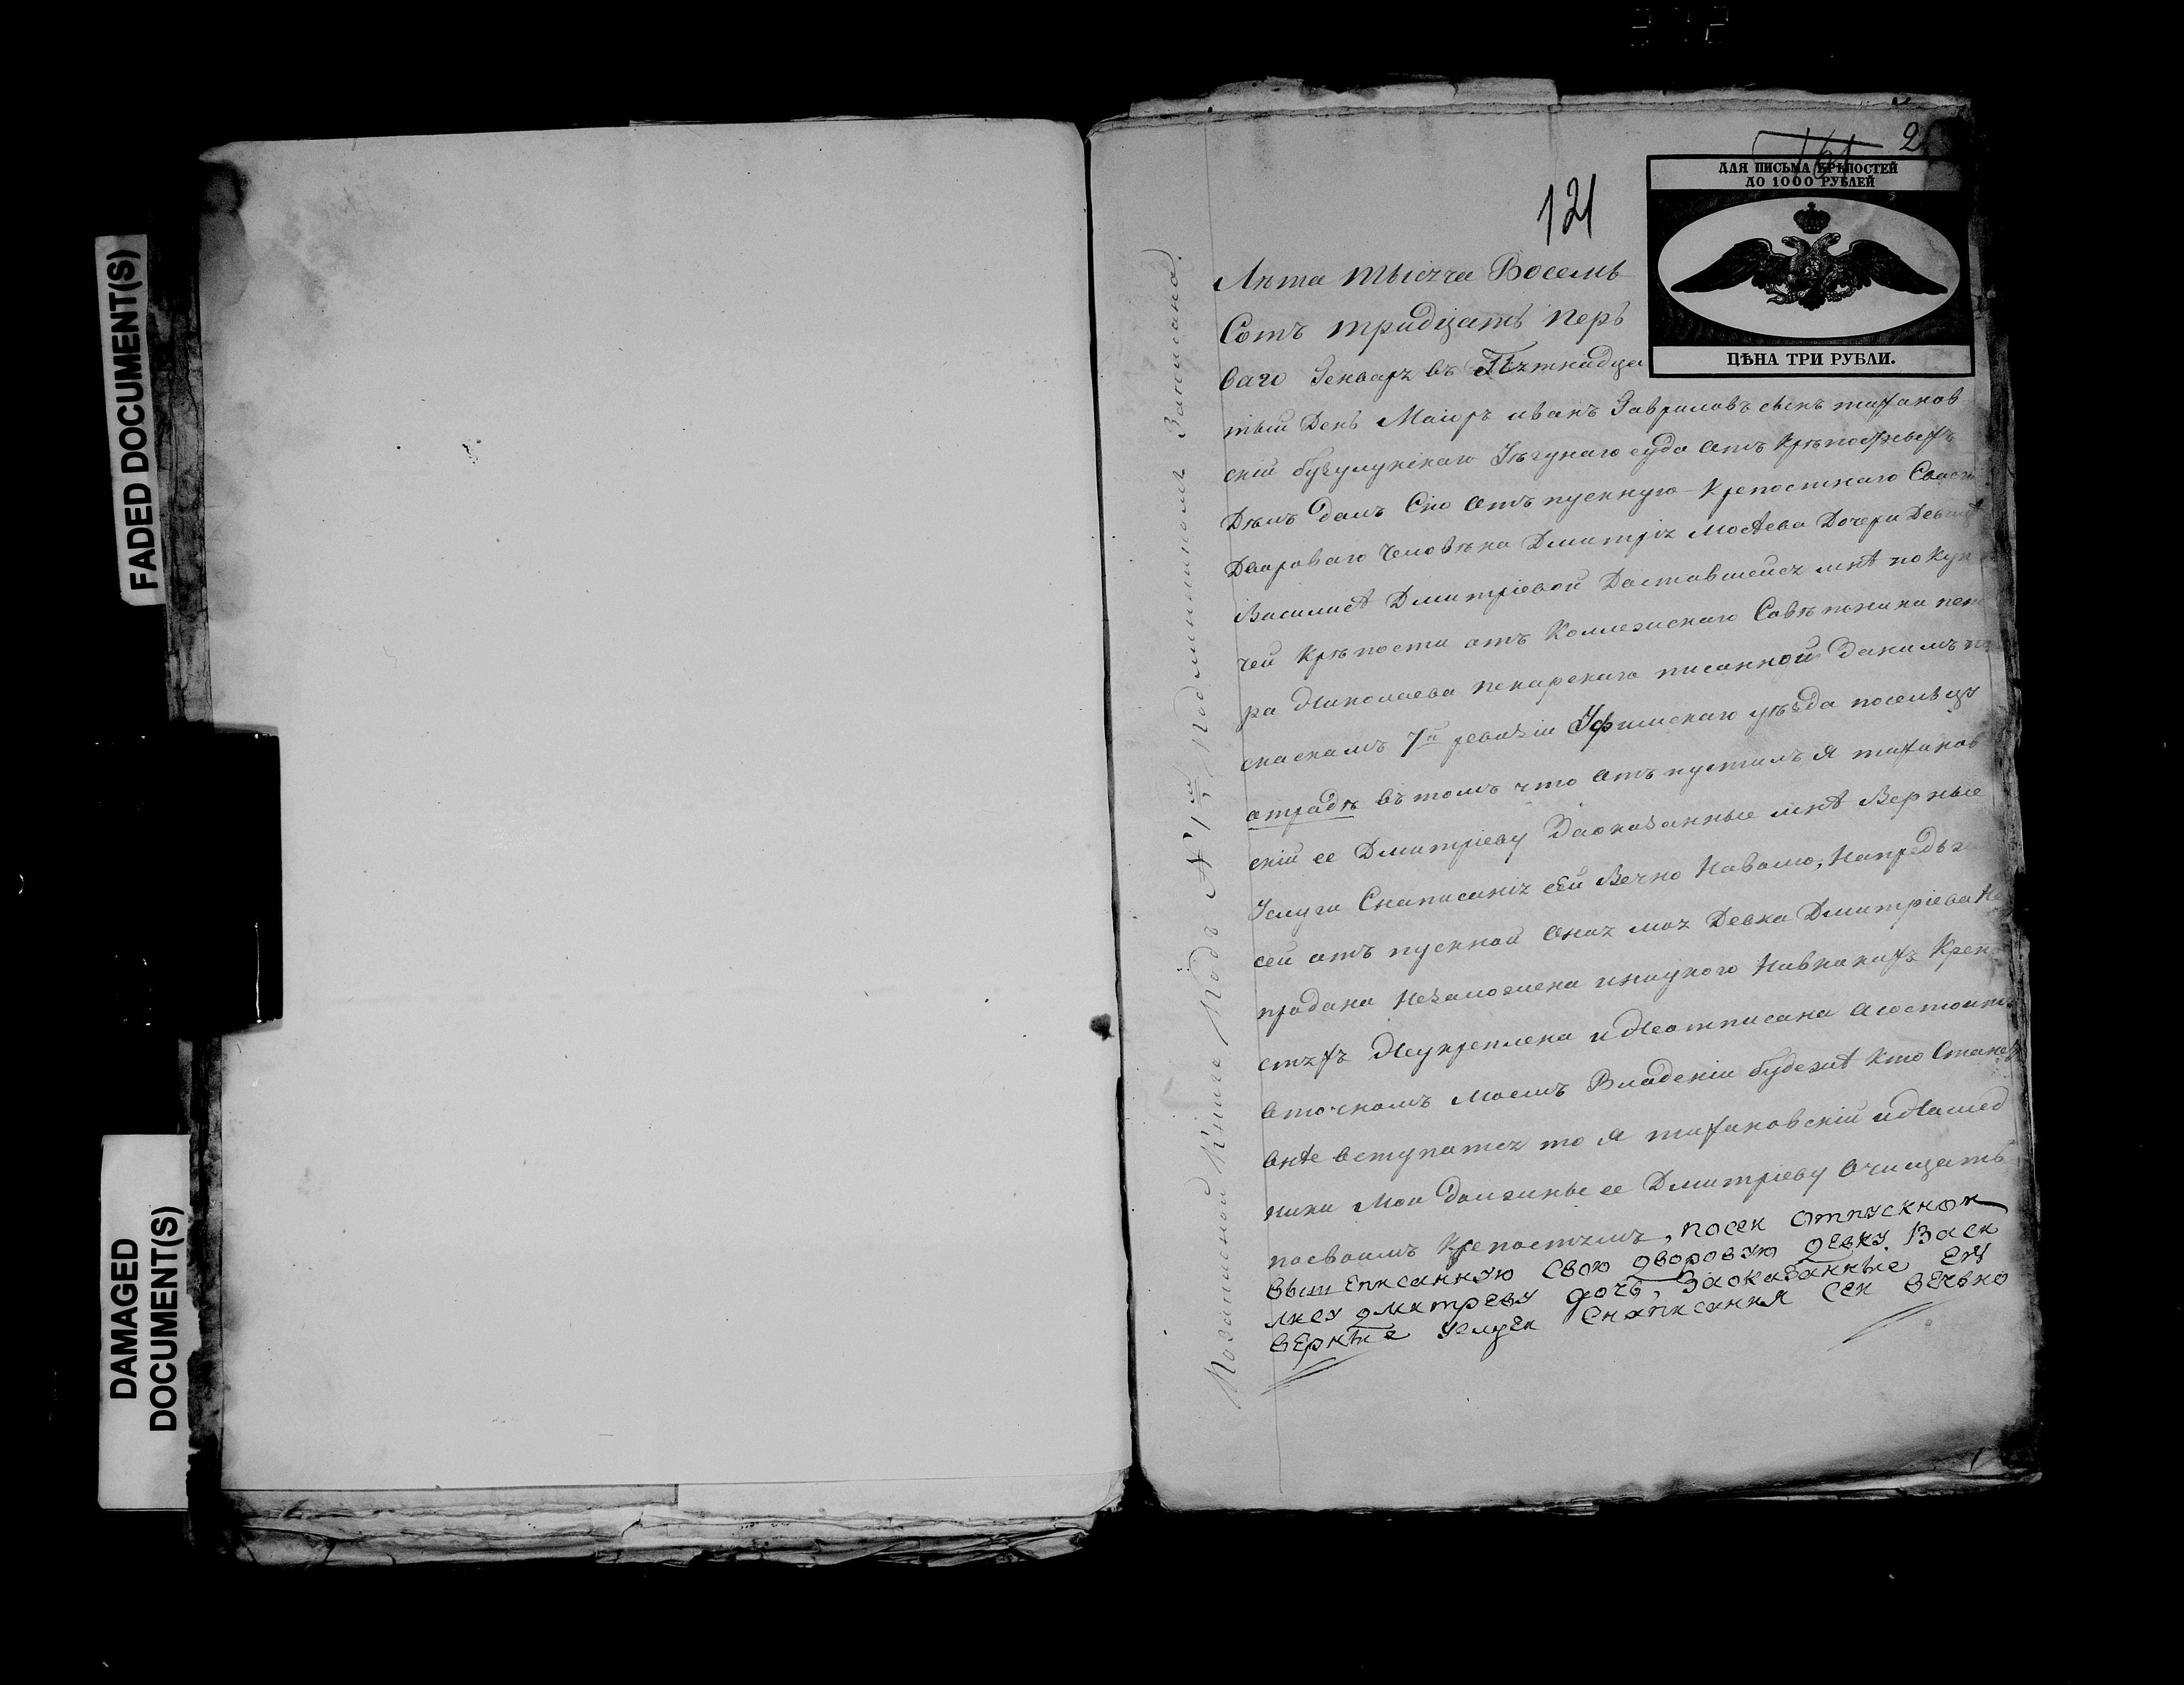 FADED DOCUMENT(S)
DAMAGED
DOCUMENT(S)
2
121
ДЛЯ ПИСЬМА КРѢПОСТЕЙ
ДО 1000 РУБЛЕЙ
ЦѢНА ТРИ РУБЛИ.
Лѣта тысяча Восемь
Сотъ тридцать перь
ваго Генваря въ Пятнадца
тый День Маиоръ иванъ Гавриловъ сынъ тихановъ
скій бузулукскаго Уѣзднаго суда отъ Крѣпостныхъ
Дѣлъ далъ Сію отъпускную крепостнаго Своего
Двороваго Человѣка Дмитрія Мосѣева Дочери Девке
Василисѣ Дмитріевой Доставшейся мнѣ по Куп
чей Крѣпости отъ Коллежскаго Совѣтника пет
ра Николаева пекарскаго писанной
скаскамъ 7й ревизіи Уфимскаго уѣзда посельцу
отрадѣ въ томъ что отъпустилъ я тиханов
скій ее Дмитріеву Заоказанные мнѣ Верные
Услуги Снаписанія сей Вечно Наволю, Напредь
сей отъпускной оная моя Девка Дмитріева Не
продана Незаложена инаукого Нивкакихъ Крепо
стяхъ Неукреплена и Неотписана асостоитъ
Моемъ Владеніи будежѣ Кто Станетъ
внѣе вступатся то я тихановскій иНаслед
ники Мои Должны ее Дмитріеву Очищать
посвоимъ Крепостямъ, посеи отпускнои
вышеписанную свою дворовую девку Васи
лису дмитреву дочь, Заоказанные Ей
верные Услуги Снаписания сеи вечьно
Позаписной Книге Подъ №1м Подлиннымъ Записано.